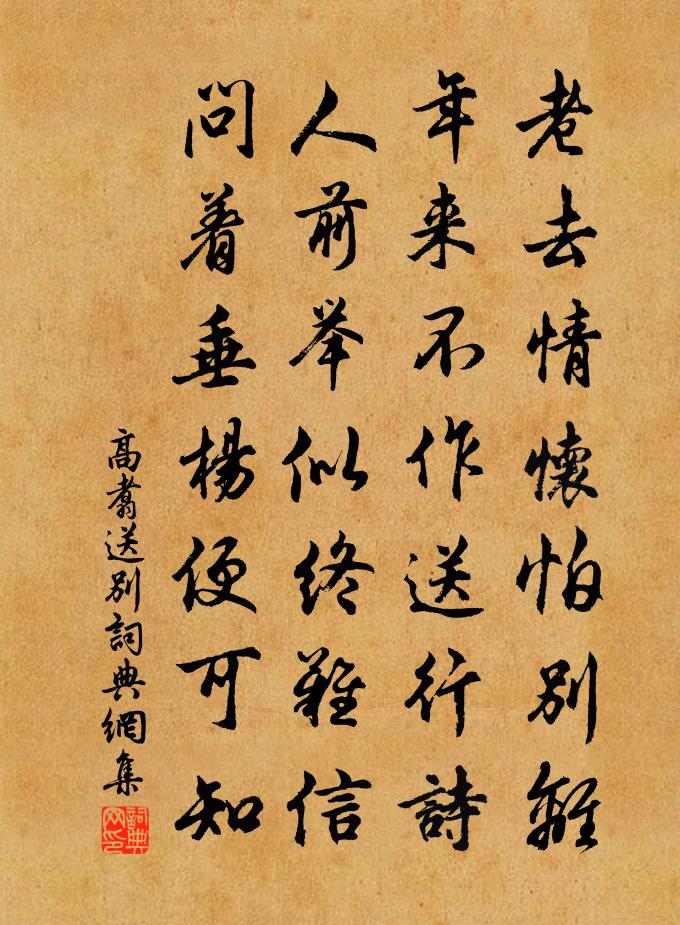 老去情懷怕別離
年来不作送行詩
人前举似終難信
問着垂楊便可知
高翥送別詞典網集
詞典网印